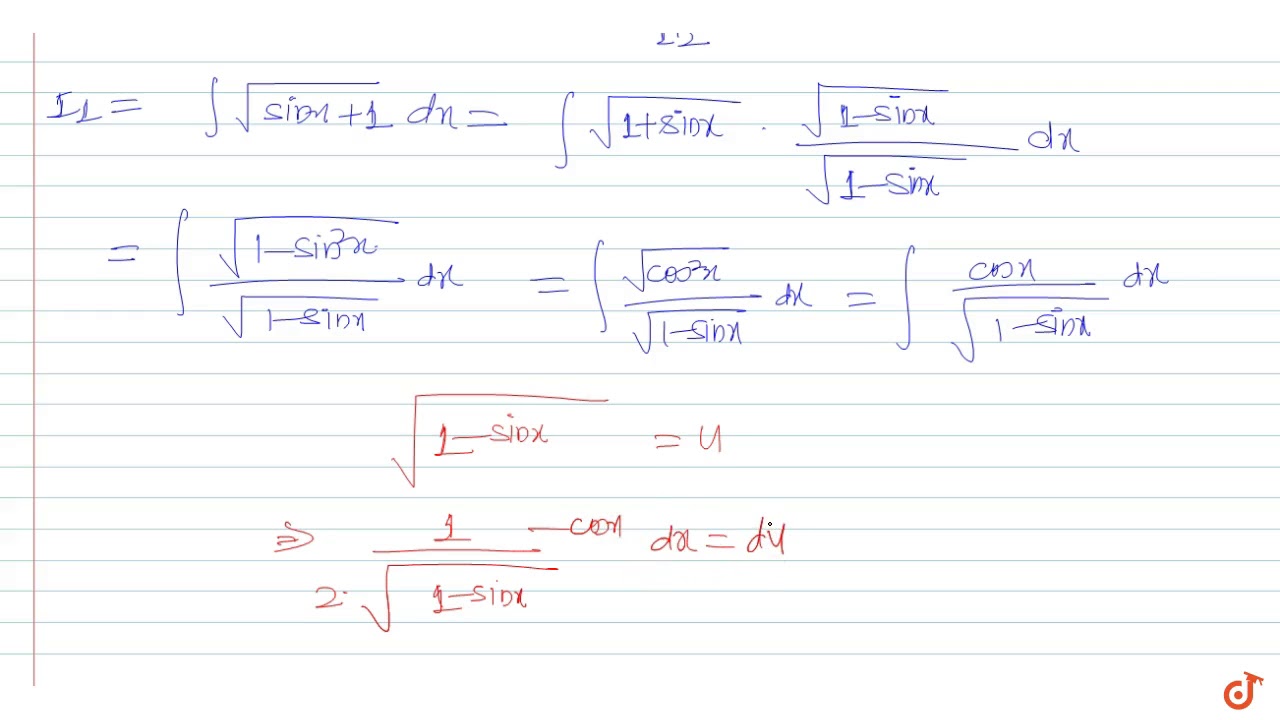 I1 = ∫ √(sinx+1) dx = ∫ √(1+sinx) . √(1-sinx) / √(1-sinx) dx
= ∫ √(1-sin²x) / √(1-sinx) dx = ∫ √(cos²x) / √(1-sinx) dx = ∫ cosx / √(1-sinx) dx
√(1-sinx) = u
⇒ 1 / 2·√(1-sinx) -cosx dx = du